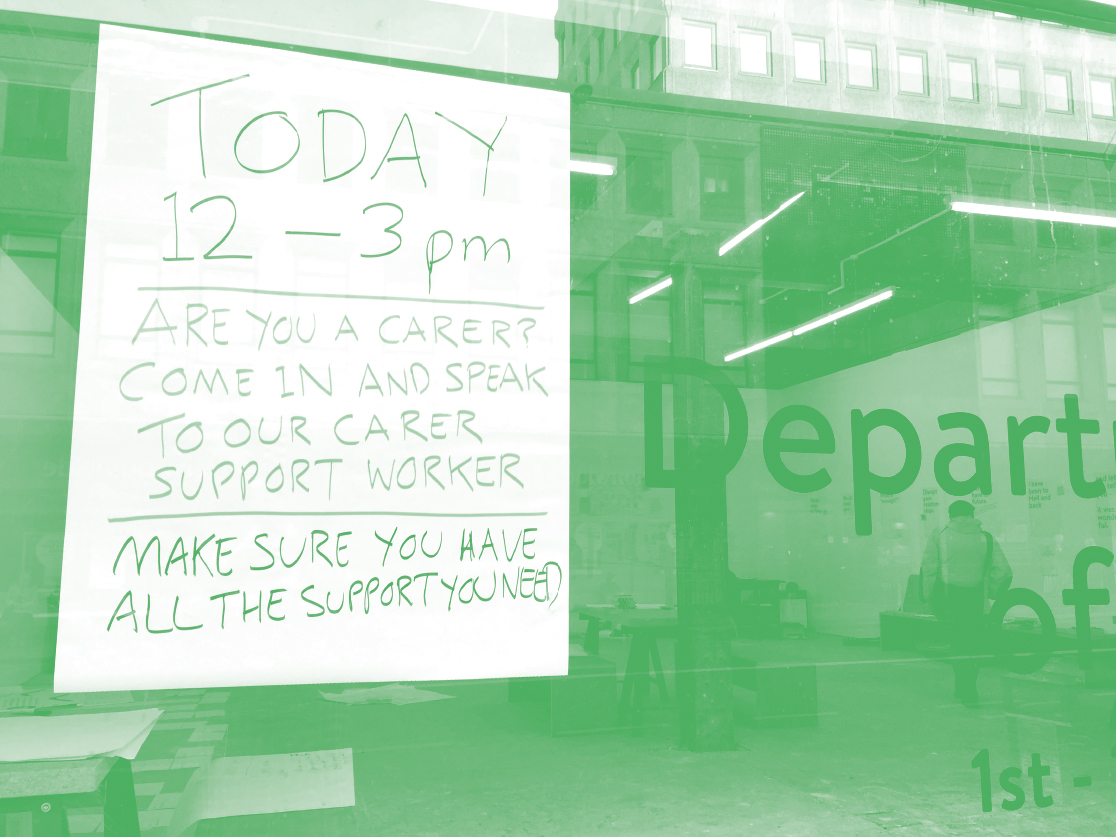 TODAY
12 – 3pm
ARE YOU A CARER?
COME IN AND SPEAK
TO OUR CARER
SUPPORT WORKER
MAKE SURE YOU HAVE
ALL THE SUPPORT YOU NEED
Depart
of
1st -